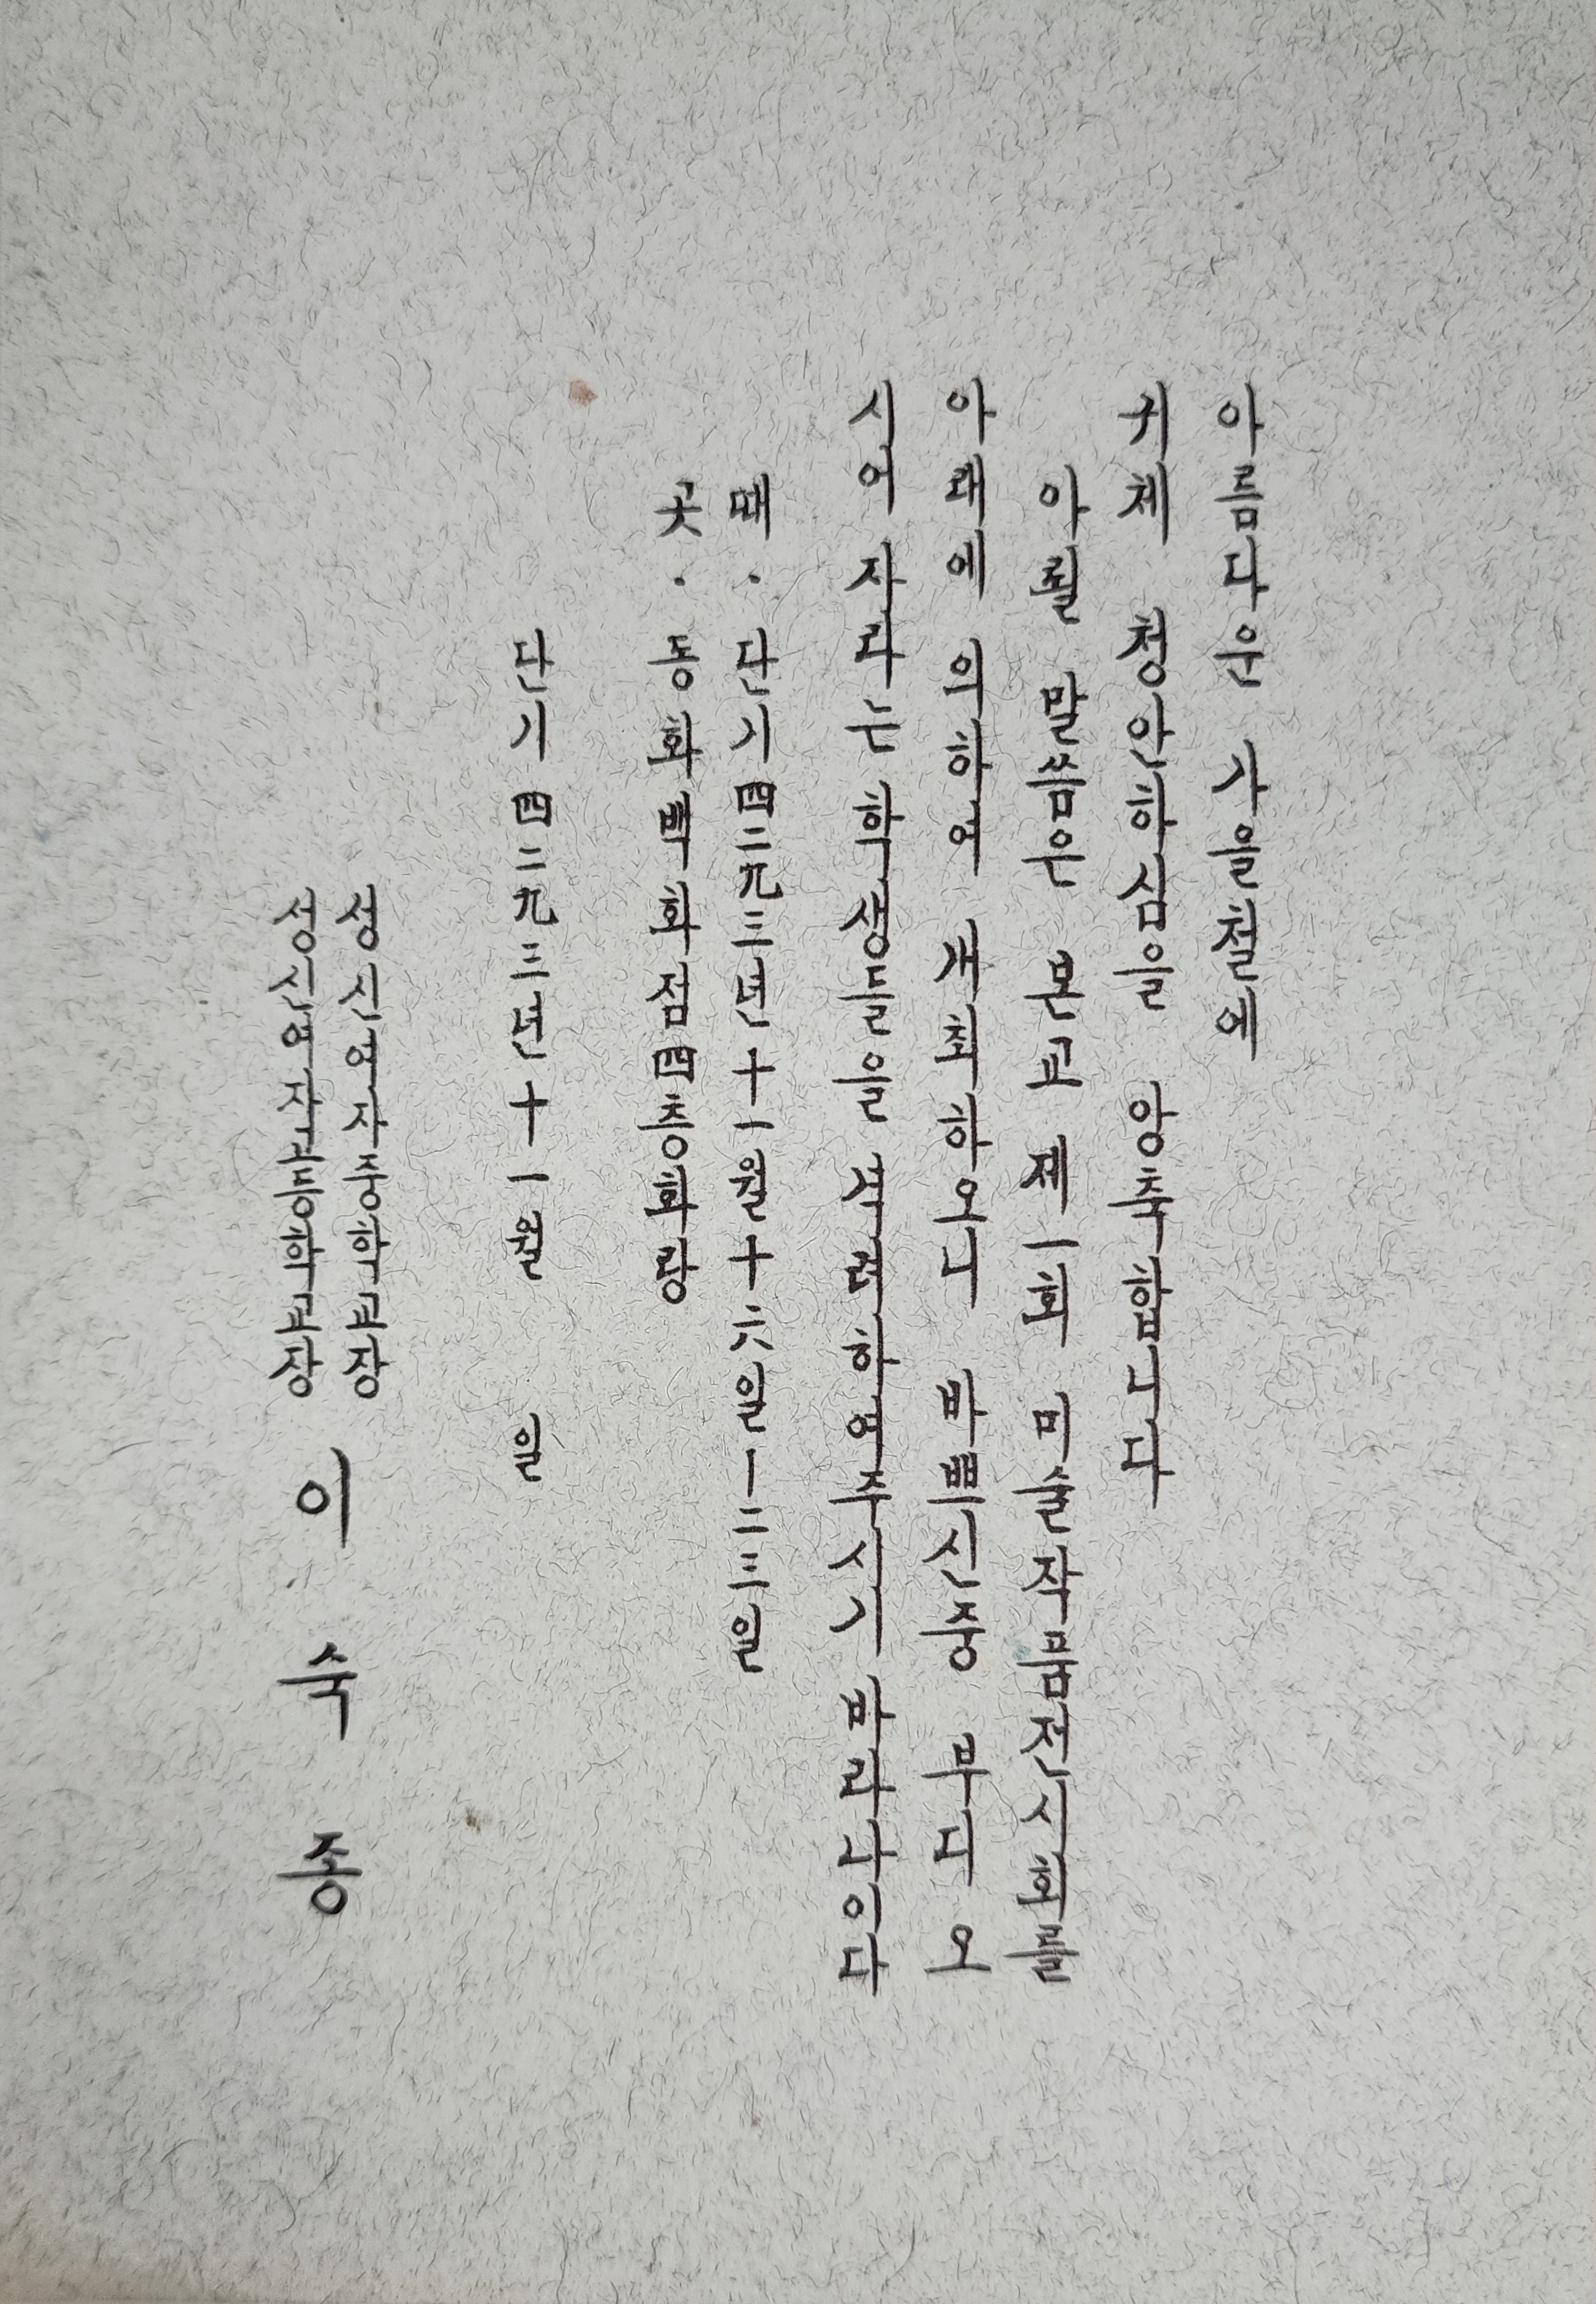 아름다운 가을철에
귀체 청안하심을 앙축하옵니다
아뢸 말씀은 본교 제一회 미술작품전시회를
아래에 의하여 개최하오니 바쁘신중 오
시어 자라는 학생들을 격려하여주시기 바라나이다
때 · 단기四二九三년十一월十六일—二三일
곳 · 동화백화점四층화랑
단기四二九三년十一월 일
정신여자중학교장
정신여자고등학교장
이 수 종